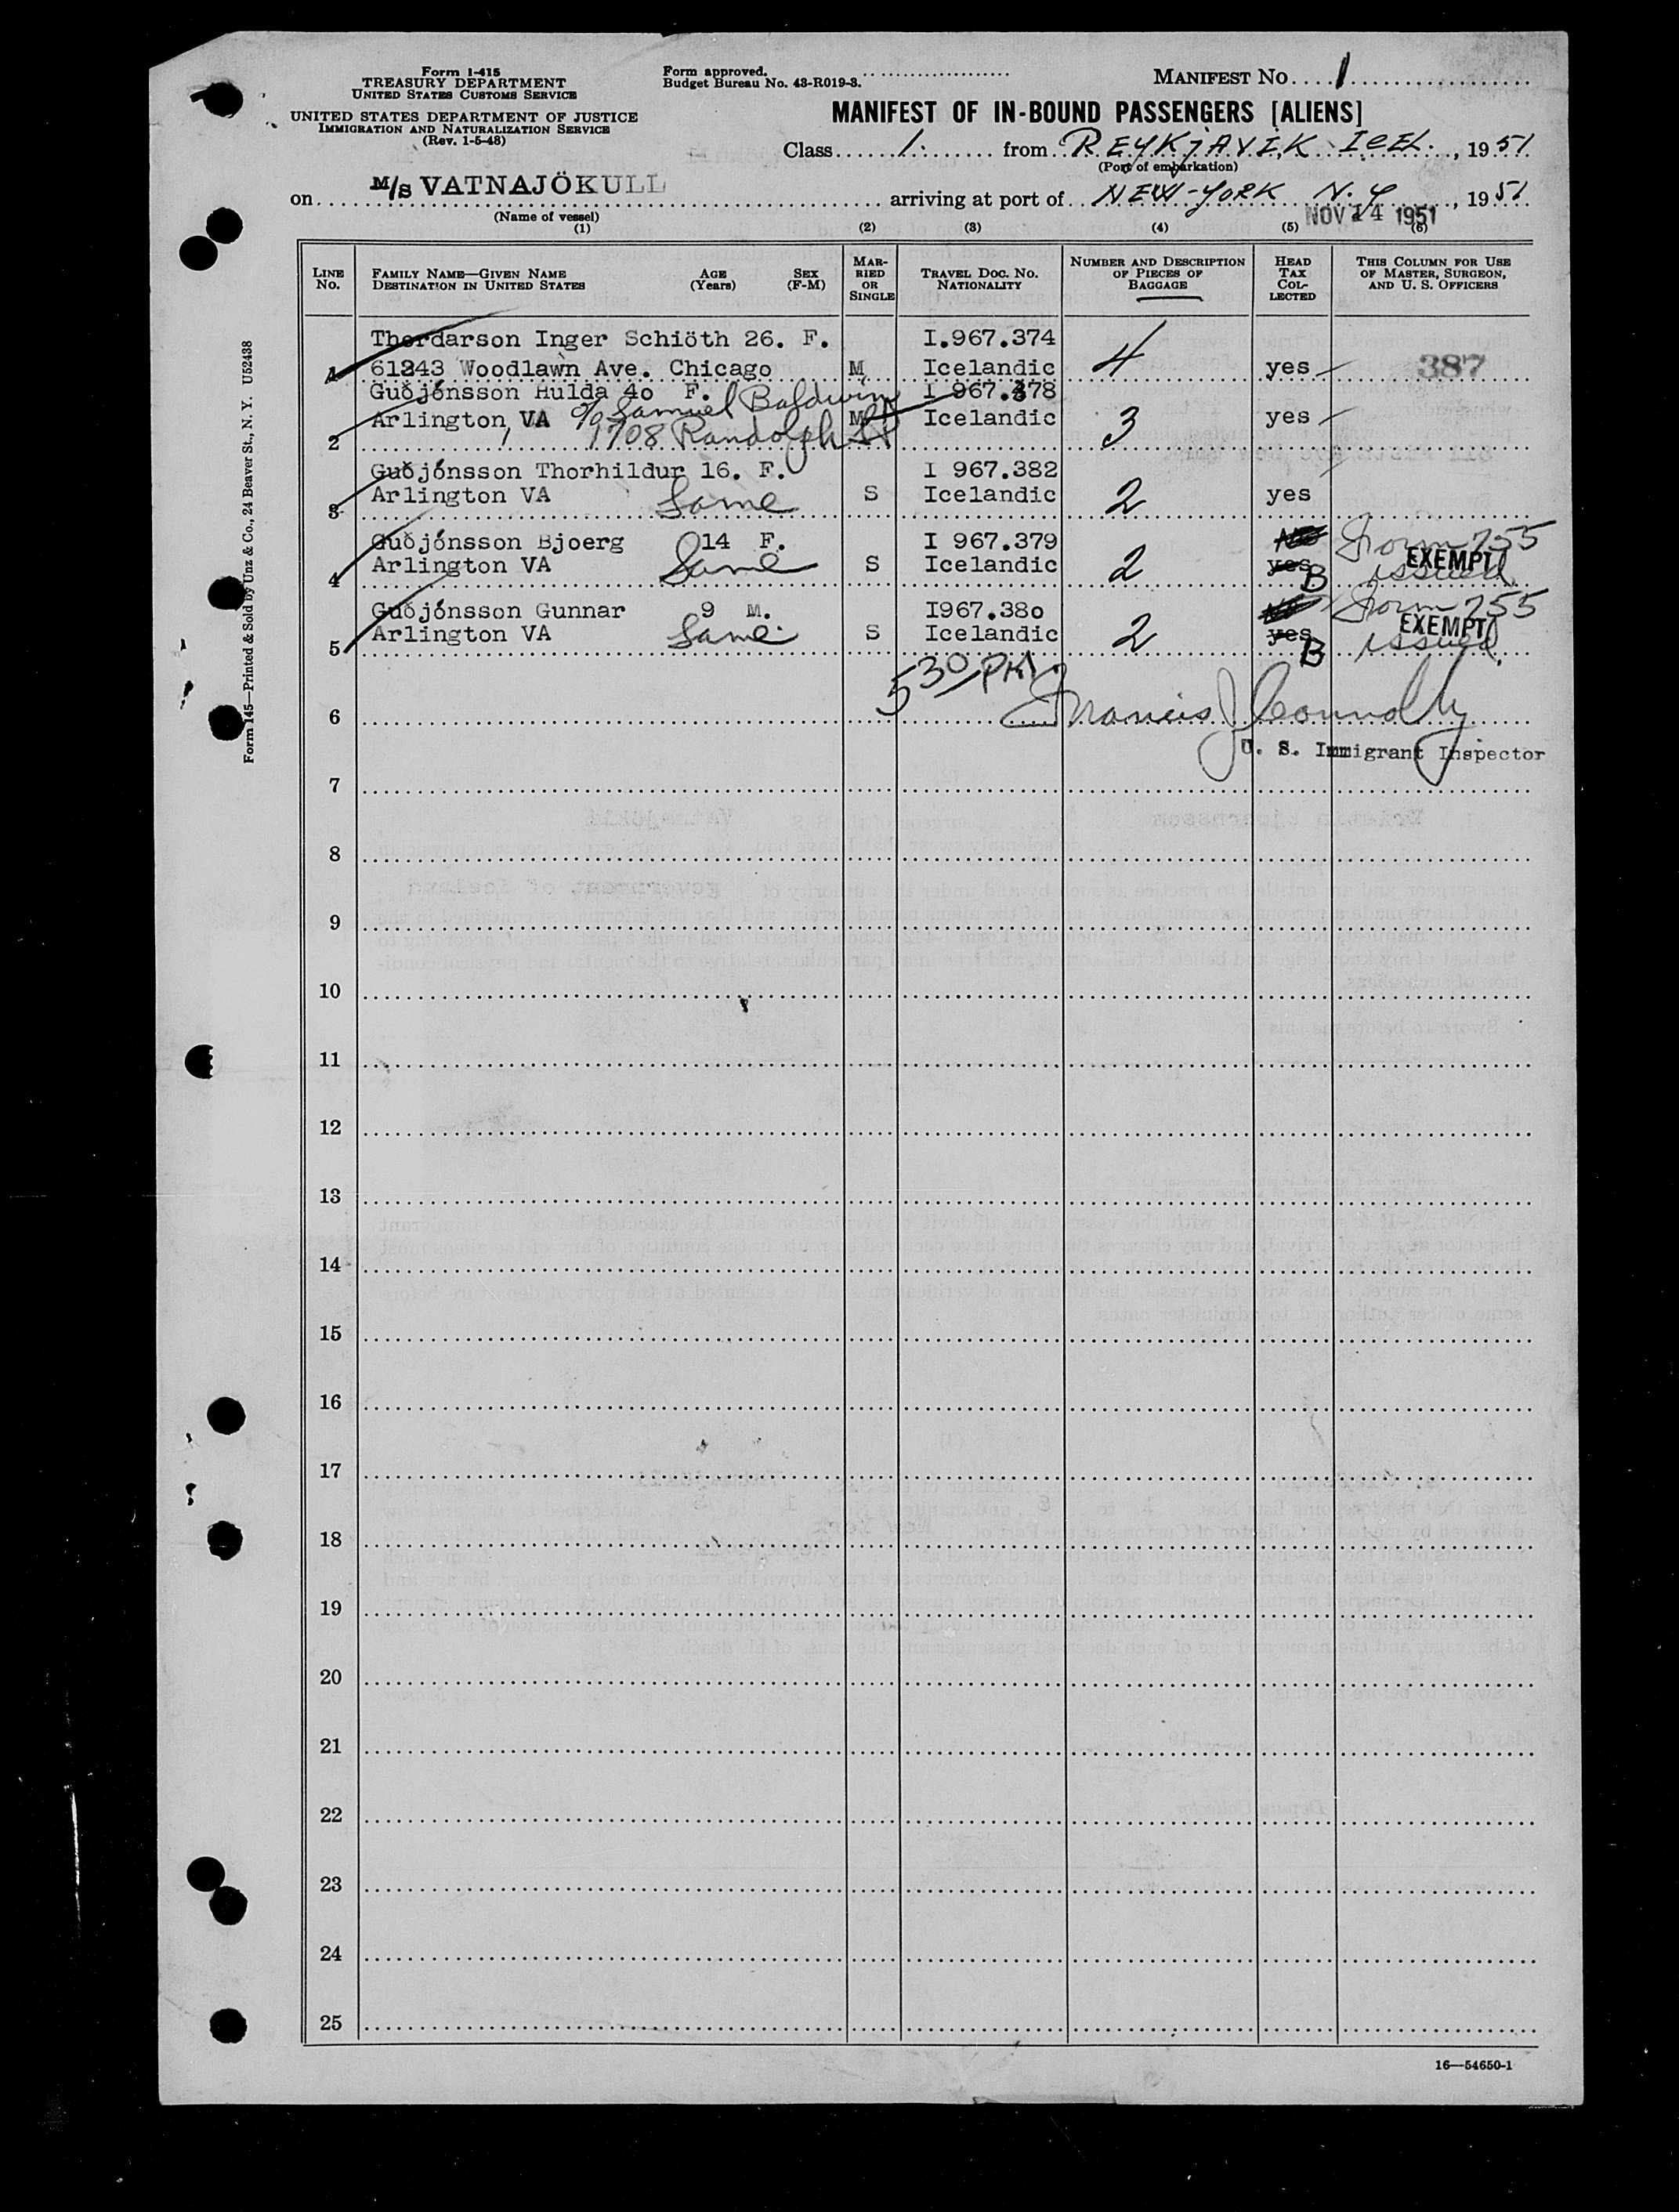 Form I-415
TREASURY DEPARTMENT
UNITED STATES CUSTOMS SERVICE
UNITED STATES DEPARTMENT OF JUSTICE
IMMIGRATION AND NATURALIZATION SERVICE
(Rev. 1-5-48)
Form approved.
Budget Bureau No. 43-R019-3.
MANIFEST NO. 1
MANIFEST OF IN-BOUND PASSENGERS [ALIENS]
Class 1. from REYKJAVIK ICEL. , 1951
(Port of embarkation)
on M/S VATNAJÖKULL arriving at port of NEW-YORK N.Y , 1951
(Name of vessel)
NOV 14 1951
(1) (2) (3) (4) (5) (6)
LINE NO.
FAMILY NAME—GIVEN NAME
DESTINATION IN UNITED STATES
AGE (Years)
SEX (F-M)
MARRIED OR SINGLE
TRAVEL DOC. NO.
NATIONALITY
NUMBER AND DESCRIPTION OF PIECES OF BAGGAGE
HEAD TAX COLLECTED
THIS COLUMN FOR USE OF MASTER, SURGEON, AND U. S. OFFICERS
Thordarson Inger Schiöth 26. F. I.967.374
1 Woodlawn Ave. Chicago M Icelandic 4 yes 387
Guðjónsson Hulda 4o F. c/o Samuel Baldwin
2 Arlington, VA 1708 Randolph St M Icelandic 3 yes
Guðjónsson Thorhildur 16. F. I 967.382
3 Arlington VA Same S Icelandic 2 yes
Guðjónsson Bjoerg 14 F. I 967.379 No Form 755
4 Arlington VA Same S Icelandic 2 yes B EXEMPT issued
Guðjónsson Gunnar 9 M. I967.38o No Form 755
5 Arlington VA Same S Icelandic 2 yes B EXEMPT issued
5 30/PM
6 Francis J Connolly
U. S. Immigrant Inspector
7
8
9
10
11
12
13
14
15
16
17
18
19
20
21
22
23
24
25
16—54650-1
Form 145—Printed & Sold by Unz & Co., 24 Beaver St., N. Y. U52438